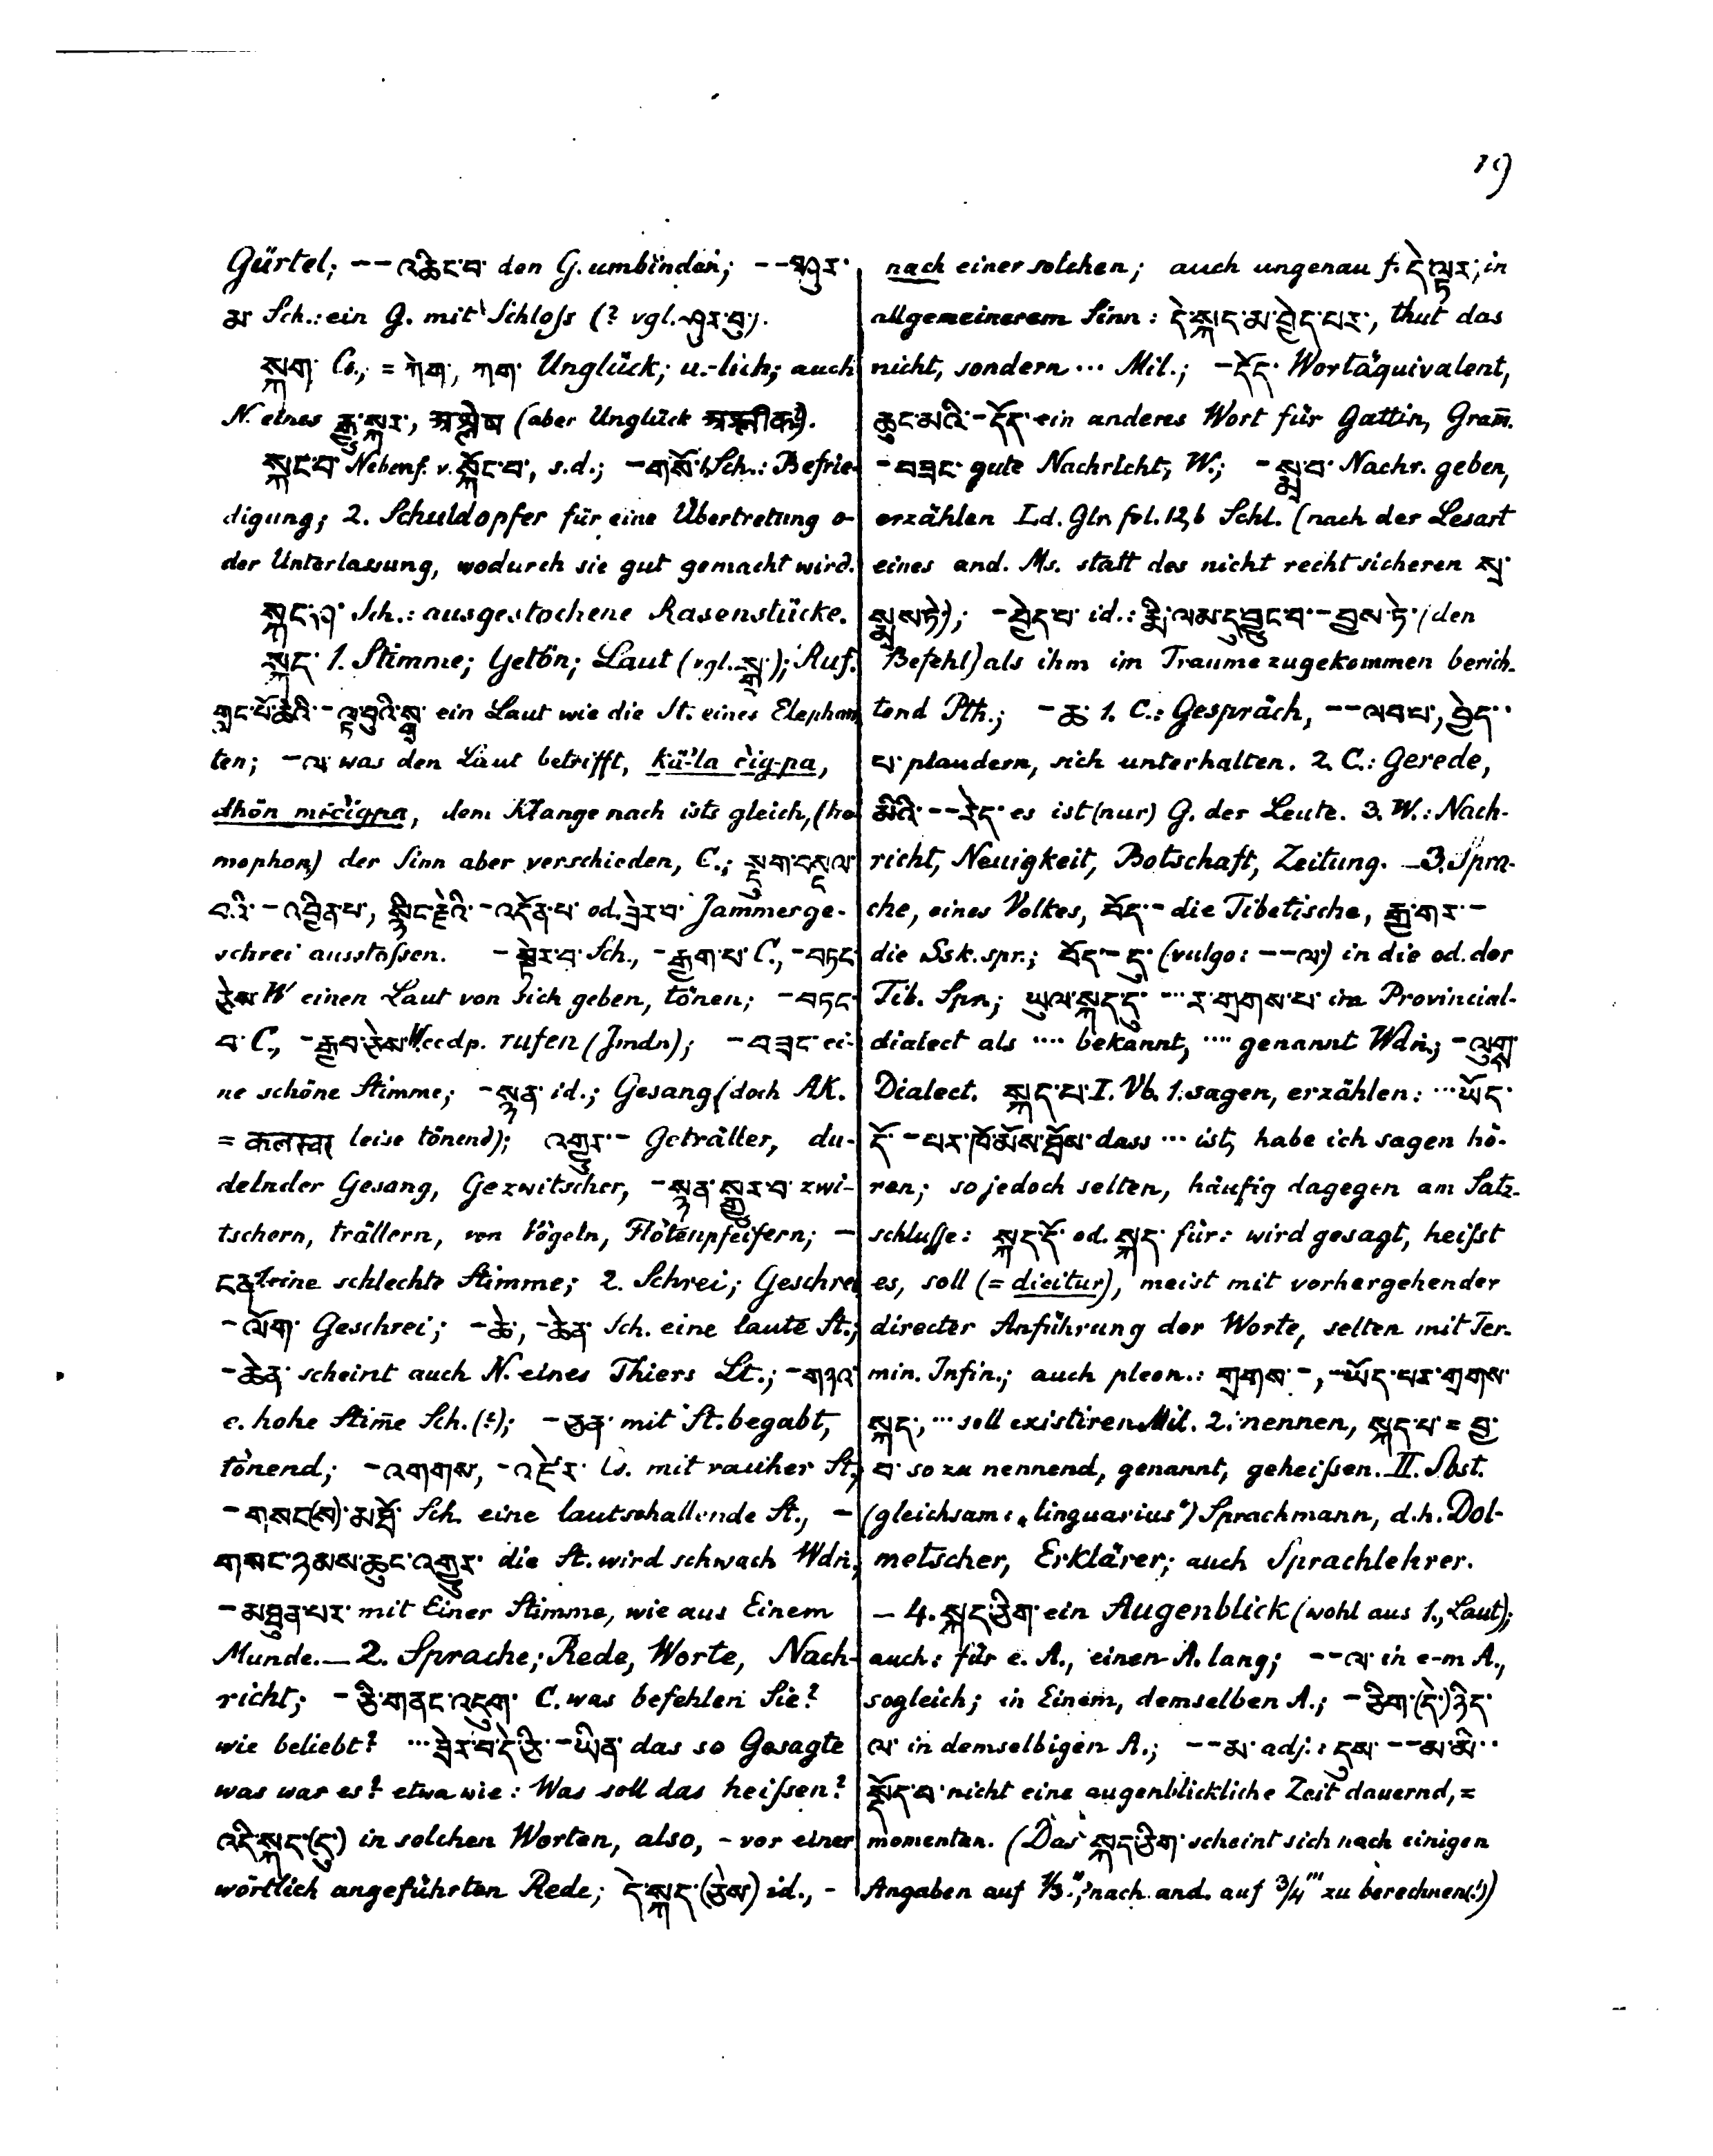 19
Gürtel; -- འཆིང་བ་ den G. umbinden; --
མ་ Sch.: ein G. mit Schloſs (? vgl. ཤུར་བུ་).
སྐག་ Cs., = ཀེག་, ཀག་ Unglück; u.-lich; auch
N. eines རྒྱུ་སྐར་, (aber Unglück
སྐང་བ་ Nebenf. v. སྐོང་བ་, s.d.; - གསོ་ 1. Sch.: Befrie-
digung; 2. Schuldopfer für eine Übertretung o-
der Unterlassung, wodurch sie gut gemacht wird.
སྐང་ Sch.: ausgestochene Rasenstücke.
སྐད་ 1. Stimme; Getön; Laut (vgl. སྒྲ་); Ruf.
གླང་པོ་ཆེའི་ - ལྟ་བུའི་སྒྲ་ ein Laut wie die St. eines Elephan
ten; - ལ་ was den Laut betrifft, kä-la čig-pa,
dhön mi-čigpa, dem Klange nach ists gleich, (ho
mophon) der Sinn aber verschieden, C.; སྡུག་བསྔལ་
བའི་ - འབྱིན་པ་, སྙིང་རྗེའི་ - འདོན་པ་ od. ཟེར་བ་ Jammerge-
schrei ausstoſsen. - སྟེར་བ་ Sch., - རྒྱག་པ་ C., - བཏང་
ཅེས་ W einen Laut von sich geben, tönen; - བཏང་
བ་ C., - རྒྱབ་ཅེས་ W. ccdp. rufen (Jmdn); - བཟང་ ei-
ne schöne Stimme; - སྙན་ id.; Gesang (doch AK.
= leise tönend); འགྱུར་ - Geträller, du-
delnder Gesang, Gezwitscher, - སྙན་སྒྱུར་བ་ zwi-
tschern, trällern, von Vögeln, Flötenpfeifern; -
ངན་ 1. eine schlechte Stimme; 2. Schrei; Geschrei
- ལོག་ Geschrei; - ཆེ་, - ཆེན་ Sch. eine laute St.;
- ཆེན་ scheint auch N. eines Thiers Lt.;
e. hohe Stim̄e Sch. (?); - ཅན་ mit St. begabt,
tönend; - འགགས་, - འཛེར་ Cs. mit rauher St.,
- གསང་(ས)་མཐོ་ Sch. eine lautschallende St., -
གསང་ཉམས་ཆུང་འགྱུར་ die St. wird schwach Wdṅ;
- མཐུན་པར་ mit Einer Stimme, wie aus Einem
Munde. — 2. Sprache; Rede, Worte, Nach-
richt; - ཅི་གནང་འདུག་ C. was befehlen Sie?
wie beliebt? ··· ཟེར་བ་དེ་ཅི་ - ཡིན་ das so Gesagte
was war es? etwa wie: Was soll das heiſsen?
འདི་སྐད་(དུ་) in solchen Worten, also, - vor einer
wörtlich angeführten Rede; དེ་སྐད་(ཅེས་) id., -
nach einer solchen; auch ungenau f. དེ་ལྟར་; in
allgemeinerem Sinn: དེ་སྐད་མ་བྱེད་པར་, thut das
nicht, sondern ··· Mil.; - དོད་ Wortäquivalent,
ཆུང་མའི་ - དོད་ ein anderes Wort für Gattin, Gram̄.
- བཟང་ gute Nachricht, W.; - སྨྲ་བ་ Nachr. geben,
erzählen Ld. Glr. fol. 12,b Schl. (nach der Lesart
eines and. Ms. statt des nicht recht sicheren སྨྲ་
སྨྲས་ཏེ་); - བྱེད་པ་ id.: རྨི་ལམ་དུ་བྱུང་བ་ - བྱས་ཏེ་ (den
Befehl) als ihm im Traume zugekommen berich-
tend Pth.; - ཆ་ 1. C.: Gespräch, -- ལབ་པ་, བྱེད་··
པ་ plaudern, sich unterhalten. 2. C.: Gerede,
མིའི་ -- རེད་ es ist (nur) G. der Leute. 3. W.: Nach-
richt, Neuigkeit, Botschaft, Zeitung. — 3. Spra-
che, eines Volkes, བོད་ - die Tibetische, རྒྱ་གར་ -
die Ssk. spr.; བོད་ - དུ་ (vulgo: -- ལ་) in die od. der
Tib. Spr.; ཡུལ་སྐད་དུ་ ··· ར་གྲགས་པ་ im Provincial-
dialect als ···· bekannt, ···· genannt Wdṅ.; - ལུགས་
Dialect. སྐད་པ་ I. Vb. 1. sagen, erzählen: ··· ཡོད་
དོ་ - པར་ཁོ་མོས་ཐོས་ dass ··· ist, habe ich sagen hö-
ren; so jedoch selten, häufig dagegen am Satz-
schluſſe: སྐད་དོ་ od. སྐད་ für: wird gesagt, heiſst
es, soll (= dicitur), meist mit vorhergehender
directer Anführung der Worte, selten mit Ter-
min. Infin.; auch pleon.: གྲགས་ -, - ཡོད་པར་གྲགས་
སྐད་, ··· soll existiren Mil. 2. nennen, སྐད་པ་ = བྱ་
བ་ so zu nennend, genannt, geheiſsen. — II. Sbst.
(gleichsam: „linguarius“) Sprachmann, d.h. Dol-
metscher, Erklärer; auch Sprachlehrer.
— 4. སྐད་ཅིག་ ein Augenblick (wohl aus 1., Laut);
auch: für e. A., einen A. lang; -- ལ་ in e-m A.,
sogleich; in Einem, demselben A.; - ཅིག་(དེ་)ཉིད་
ལ་ in demselbigen A.; -- མ་ adj.: དུས་ -- མ་མི་··
སྡོད་པ་ nicht eine augenblickliche Zeit dauernd, =
momentan. (Das སྐད་ཅིག་ scheint sich nach einigen
Angaben auf 1/3", nach and. auf 3/4"' zu berechnen(!))